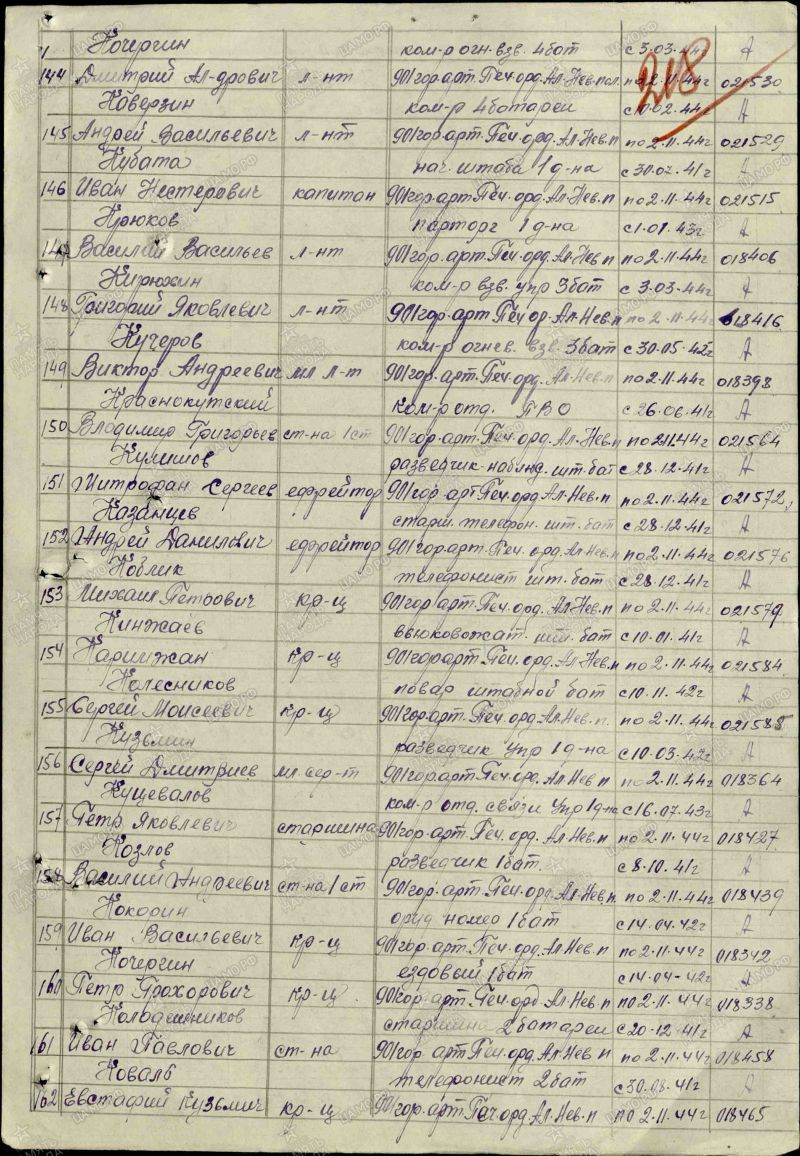 218
Кочергин ком-р огн. взв. 4 бат с 3.03.44г А
144 Дмитрий Ал-дрович л-нт 901 гор. арт. Печ. орд. Ал-Нев. пол. по 2.11.44г 021530
Каверзин ком-р 4 батареи с 10.02.44г А
145 Андрей Васильевич л-нт 901 гор. арт. Печ. орд. Ал. Нев. п по 2.11.44г 021529
Кубата нач. штаба 1 д-на с 30.07.41г А
146 Иван Нестерович капитан 901 гор. арт. Печ. орд. Ал. Нев. п по 2.11.44г 021515
Крюков парторг 1 д-на с 1.01.43г А
147 Василий Васильев л-нт 901 гор. арт. Печ. орд. Ал. Нев. п по 2.11.44г 018406
Кирюхин ком-р взв. упр 3 бат с 3.03.44г А
148 Григорий Яковлевич л-нт 901 гор. арт. Печ. ор. Ал. Нев. п по 2.11.44г 018416
Кучеров ком-р огнев. взв. 3 бат с 30.05.42г А
149 Виктор Андреевич мл л-т 901 гор. арт. Печ. орд. Ал. Нев. п по 2.11.44г 018398
Краснокутский ком-р отд. ПВО с 26.06.41г А
150 Владимир Григорьев ст-на 1 ст 901 гор. арт. Печ. орд. Ал. Нев. п по 2.11.44г 021564
Кулишов разведчик-наблюд. шт. бат с 28.12.41г А
151 Митрофан Сергеев ефрейтор 901 гор. арт. Печ. орд. Ал. Нев. п по 2.11.44г 021572
Казанцев старш. телефон. шт. бат с 28.12.41г А
152 Андрей Данилович ефрейтор 901 гор. арт. Печ. орд. Ал. Нев. п по 2.11.44г 021576
Коблик телефонист шт. бат с 28.12.41г А
153 Михаил Петрович кр-ц 901 гор. арт. Печ. орд. Ал. Нев. п по 2.11.44г 021579
Кинжаев вьюковожат. шт. бат с 10.01.41г А
154 Наримжан кр-ц 901 гор. арт. Печ. орд. Ал. Нев. п по 2.11.44г 021584
Колесников повар штабной бат с 10.11.42г А
155 Сергей Моисеевич кр-ц 901 гор. арт. Печ. орд. Ал. Нев. п. по 2.11.44г 021585
Кузьмин разведчик Упр 1 д-на с 10.03.42г А
156 Сергей Дмитриев мл. сер-т 901 гор. арт. Печ. орд. Ал. Нев. п по 2.11.44г 018364
Куцевалов ком-р отд. связи Упр 1 д-на с 16.07.43г А
157 Петр Яковлевич старшина 901 гор. арт. Печ. орд. Ал. Нев. п по 2.11.44г 018427
Козлов разведчик 1 бат с 8.10.41г А
158 Василий Андреевич ст-на 1 ст 901 гор. арт. Печ. орд. Ал. Нев. п по 2.11.44г 018439
Кокорин оруд. номер 1 бат с 14.04.42г А
159 Иван Васильевич кр-ц 901 гор. арт. Печ. орд. Ал. Нев. п по 2.11.44г 018342
Кочергин ездовый 1 бат с 14.04-42г А
160 Петр Прохорович кр-ц 901 гор. арт. Печ. орд Ал. Нев. п по 2.11.44г 018338
Колодешников старшина 2 батареи с 20.12.41г А
161 Иван Павлович ст-на 901 гор. арт. Печ. орд. Ал. Нев. п по 2.11.44г 018458
Коваль телефонист 2 бат с 30.08.41г А
162 Евстафий Кузьмич кр-ц 901 гор. арт. Печ орд. Ал. Нев. п по 2.11.44г 018465